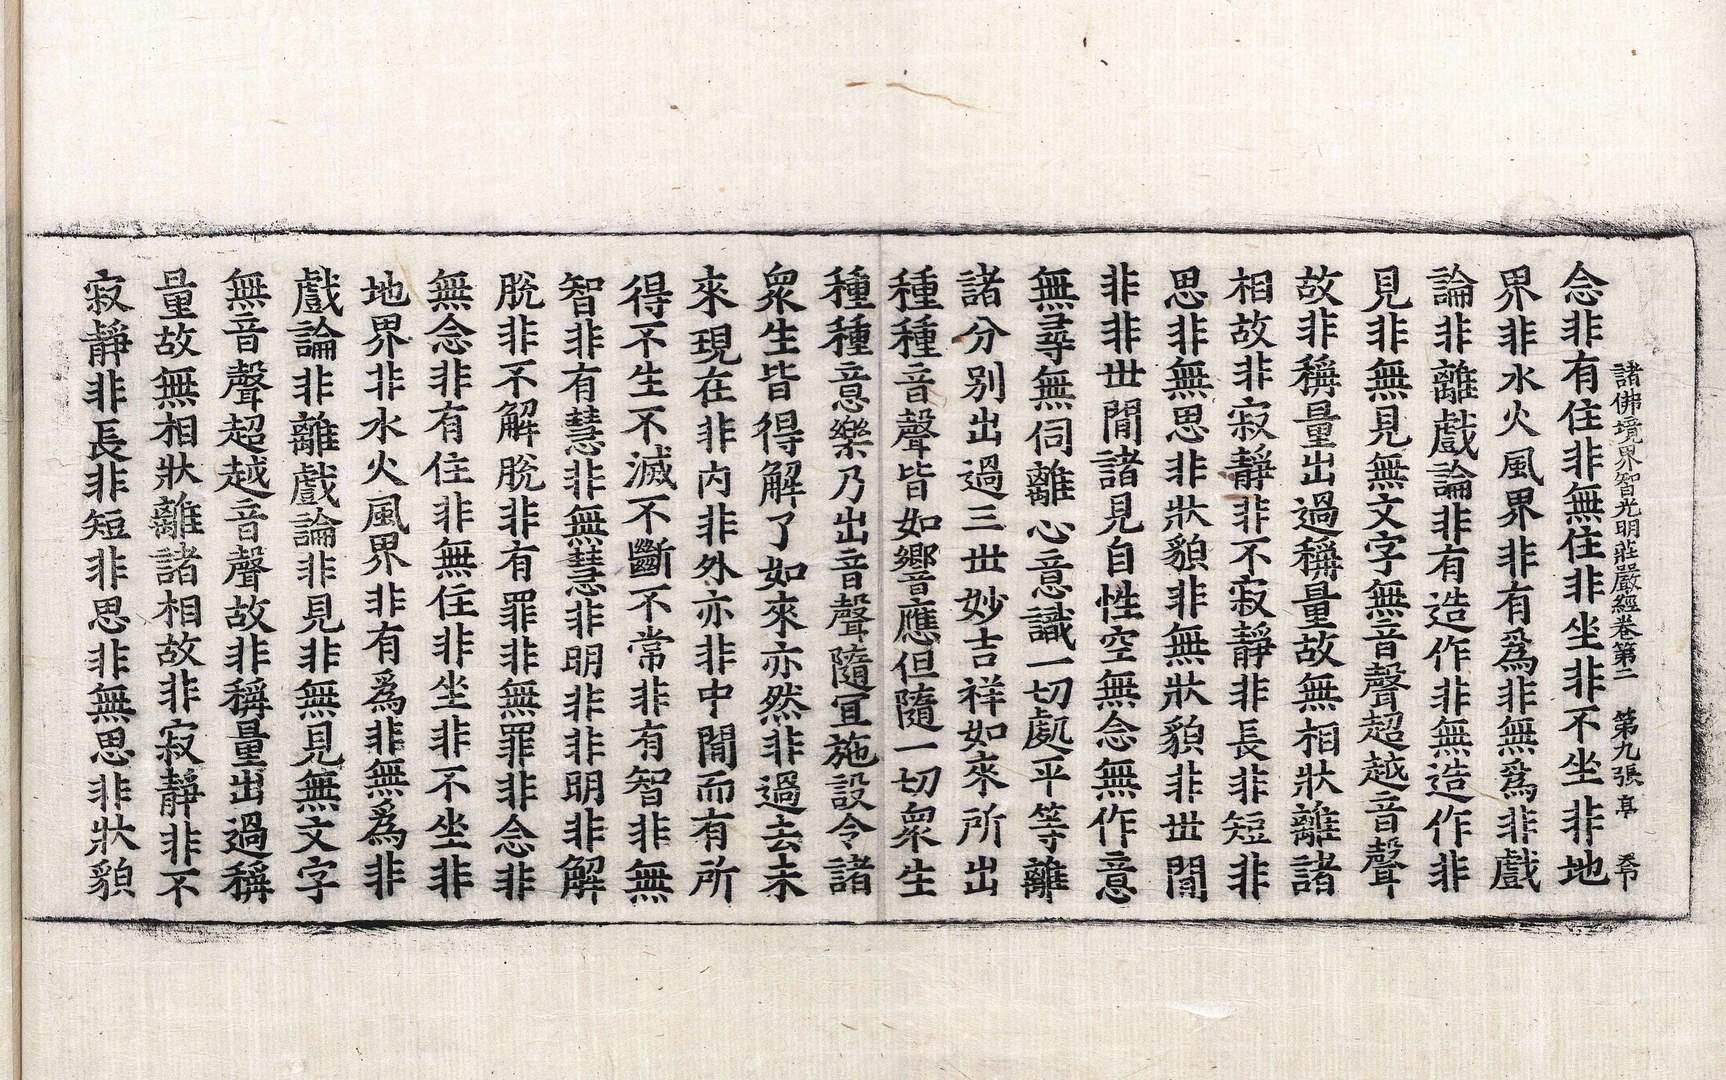 諸佛境界智光明莊嚴經卷第二 第九張
念非有住非無住非坐非不坐非地
界非水火風界非有爲非無爲非戲
論非離戲論非有造作非無造作非
見非無見無文字無音聲超越音聲
故非稱量出過稱量故無相狀離諸
相故非寂靜非不寂靜非長非短非
思非無思非狀貌非無狀貌非世閒
非非世閒諸見自性空無念無作意
無尋無伺離心意識一切處平等離
諸分別出過三世妙吉祥如來所出
種種音聲皆如響應但隨一切衆生
種種意樂乃出音聲隨宜施設令諸
衆生皆得解了如來亦然非過去未
來現在非內非外亦非中閒而有所
得不生不滅不斷不常非有智非無
智非有慧非無慧非明非非明非解
脫非不解脫非有罪非無罪非念非
無念非有住非無住非坐非不坐非
地界非水火風界非有爲非無爲非
戲論非離戲論非見非無見無文字
無音聲超越音聲故非稱量出過稱
量故無相狀離諸相故非寂靜非不
寂靜非長非短非思非無思非狀貌